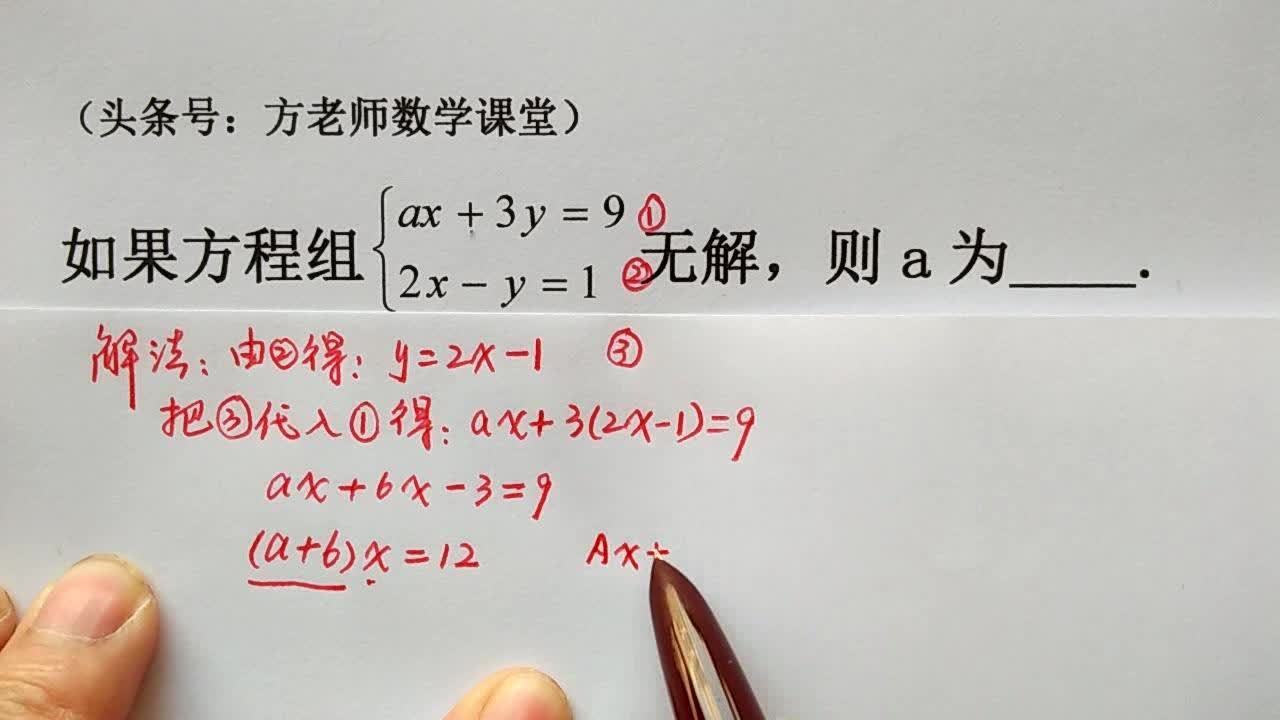 （头条号：方老师数学课堂）
如果方程组{ax+3y=9 ① 2x-y=1 ② 无解，则a为____.
解法：由②得：y=2x-1 ③
把③代入①得：ax+3(2x-1)=9
ax+6x-3=9
(a+6)x=12 Ax